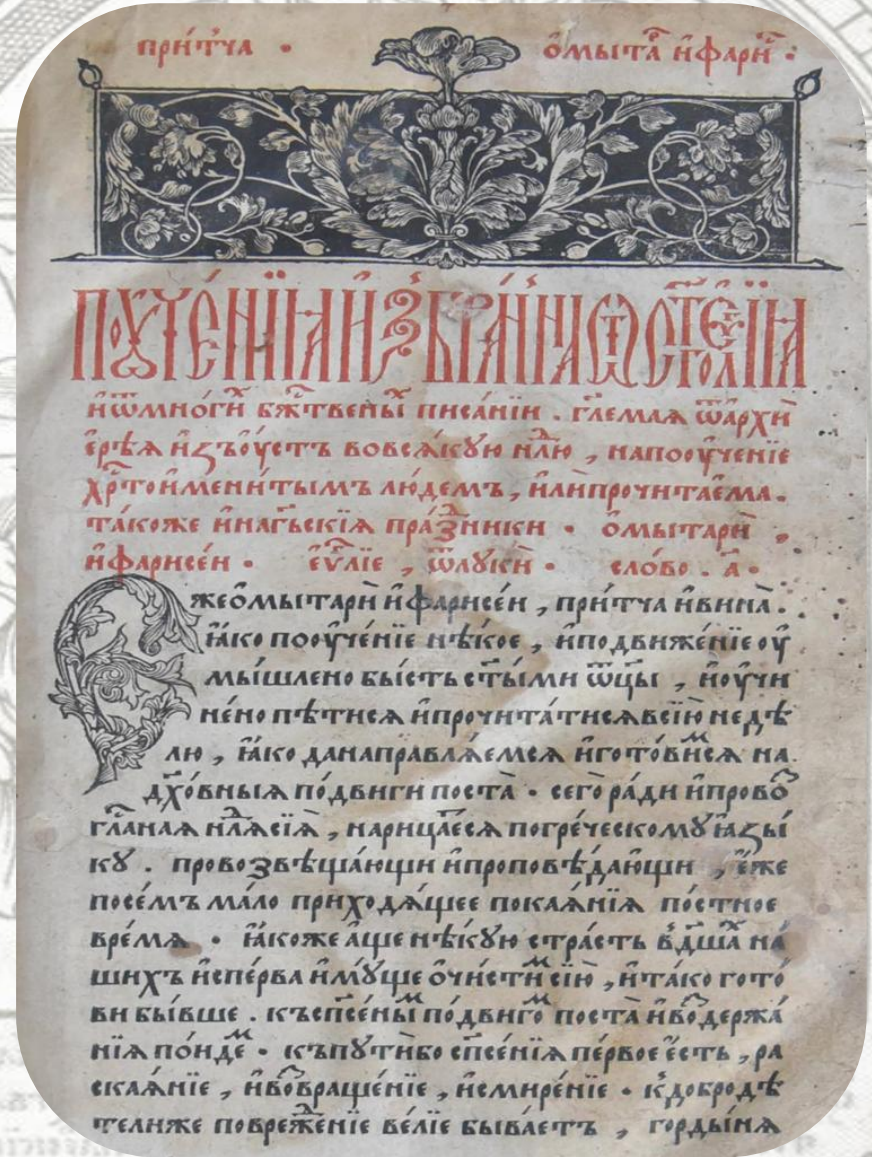 при́тча · ѡ҆мыта̑ и҆фари̑ ·
ПОУЧЕ́НЇѦ И҆ЗБРА́ННА ѾСТ҃ГО ЕѴ҃ЛЇѦ
и҆ѿмно́ги бж҃твены̑ писа́нїи . гл҃емаѧ ѿа҆рхи
ері́ѣѧ и҆зъоу́стъ вовсѧ́кую нл҃ю , напооуче́нїе
хр҃тоимени́тымъ лю́демъ , и҆лѝпрочита́ема .
та́коже и҆нагь҃скїѧ пра́зники · ѡ҆мытарѝ ,
и҆фарисе́и · еѵ҃лїе , ѿлꙋкѝ · сло́во . а҃ ·
Є҆жео҆мытарѝ и҆фарисе́и , при́тча и҆вина̀ .
ꙗ҆́ко пооуче́нїе нѣ́кое , и҆подвиже́нїе оу
мы́шлено бы́сть ст҃ы́ми ѿц҃ы , и҆оучи
не́но пѣ́тисѧ и҆прочита́тисѧ всїю̀ недѣ́
лю , ꙗ҆́ко данаправлѧ́емсѧ и҆гото́вимсѧ на .
дх҃о́вныѧ по́двиги поста̀ · сего̀ ра́ди и҆прово̑
гл҃анаѧ нл҃ѧ сїѧ̀ , нарица́есѧ погре́ческомꙋ ꙗ҆зы́
кꙋ . провозвѣща́ющи и҆проповѣ́дающи , е҆́же
посе́мъ ма́ло приходѧ́щее покаѧ́нїѧ по́стное
вре́мѧ · ꙗ҆́коже а҆́ще нѣ́кꙋю стра́сть вдш҃а́ на́
шихъ и҆спе́рва и҆мꙋ́ще ѡ҆чи́стим сїю̀ , и҆та́ко гото́
ви бы́вше . къспсе҃ны̑м по́двиго̑м поста̀ и҆во̑держа́
нїѧ по́иде̑м · къпꙋтѝбо спсе҃нїѧ пе́рвое е҆́сть , ра
скаѧ́нїе , и҆во̑враще́нїе , и҆смире́нїе · к̾доброде́ѣ
телиже повреже́нїе ве́лїе быва́етъ , горды́нѧ